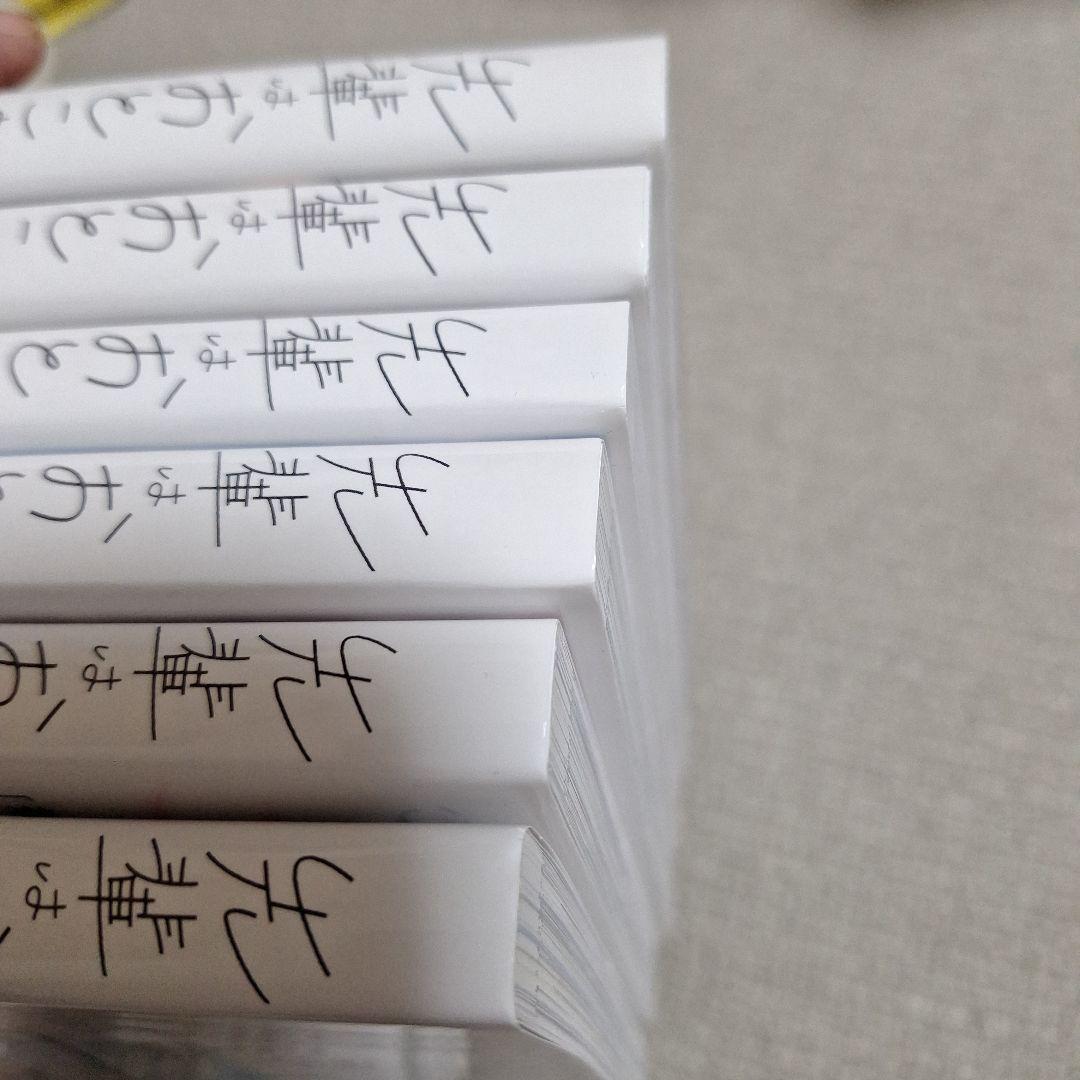 先輩はおとこ
先輩はおと
先輩はおと
先輩はお
先輩はお
先輩は